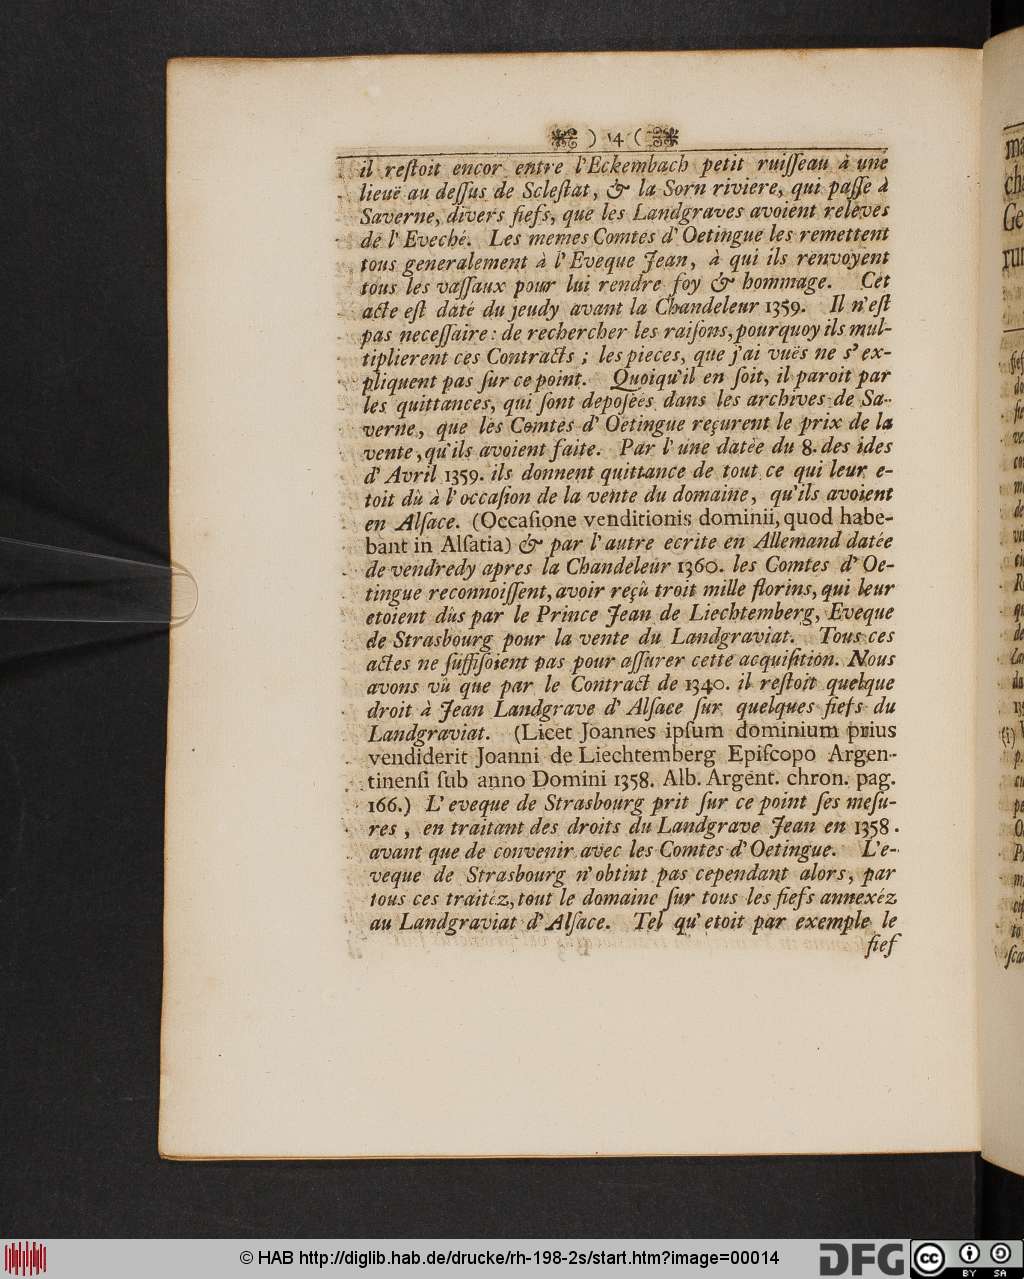 ) 14 (
il reſtoit encor entre l'Eckembach petit ruiſſeau à une
lieuë au deſſus de Scleſtat, & la Sorn riviere, qui paſſe à
Saverne, divers fiefs, que les Landgraves avoient releves
de l'Eveché. Les memes Comtes d'Oetingue les remettent
tous generalement à l'Eveque Jean, à qui ils renvoyent
tous les vaſſaux pour lui rendre foy & hommage. Cet
acte eſt daté du jeudy avant la Chandeleur 1359. Il n'eſt
pas neceſſaire: de rechercher les raiſons, pourquoy ils mul-
tiplierent ces Contracts; les pieces, que j'ai vuës ne s'ex-
pliquent pas ſur ce point. Quoiqu'il en ſoit, il paroit par
les quittances, qui ſont depoſées dans les archives de Sa-
verne, que les Comtes d'Oetingue reçurent le prix de la
vente, qu'ils avoient faite. Par l'une datée du 8. des ides
d'Avril 1359. ils donnent quittance de tout ce qui leur e-
toit dû à l'occaſion de la vente du domaine, qu'ils avoient
en Alſace. (Occaſione venditionis dominii, quod habe-
bant in Alſatia) & par l'autre ecrite en Allemand datée
de vendredy apres la Chandeleur 1360. les Comtes d'Oe-
tingue reconnoiſſent, avoir reçû troit mille florins, qui leur
etoient dûs par le Prince Jean de Liechtemberg, Eveque
de Strasbourg pour la vente du Landgraviat. Tous ces
actes ne ſuffiſoient pas pour aſſurer cette acquiſition. Nous
avons vû que par le Contract de 1340. il reſtoit quelque
droit à Jean Landgrave d'Alſace ſur quelques fiefs du
Landgraviat. (Licet Joannes ipſum dominium prius
vendiderit Joanni de Liechtemberg Epiſcopo Argen-
tinenſi ſub anno Domini 1358. Alb. Argent. chron. pag.
166.) L'eveque de Strasbourg prit ſur ce point ſes meſu-
res, en traitant des droits du Landgrave Jean en 1358.
avant que de convenir avec les Comtes d'Oetingue. L'e-
veque de Strasbourg n'obtint pas cependant alors, par
tous ces traitéz, tout le domaine ſur tous les fiefs annexéz
au Landgraviat d'Alſace. Tel qu'etoit par exemple le
fief
© HAB http://diglib.hab.de/drucke/rh-198-2s/start.htm?image=00014
DFG
cc BY SA